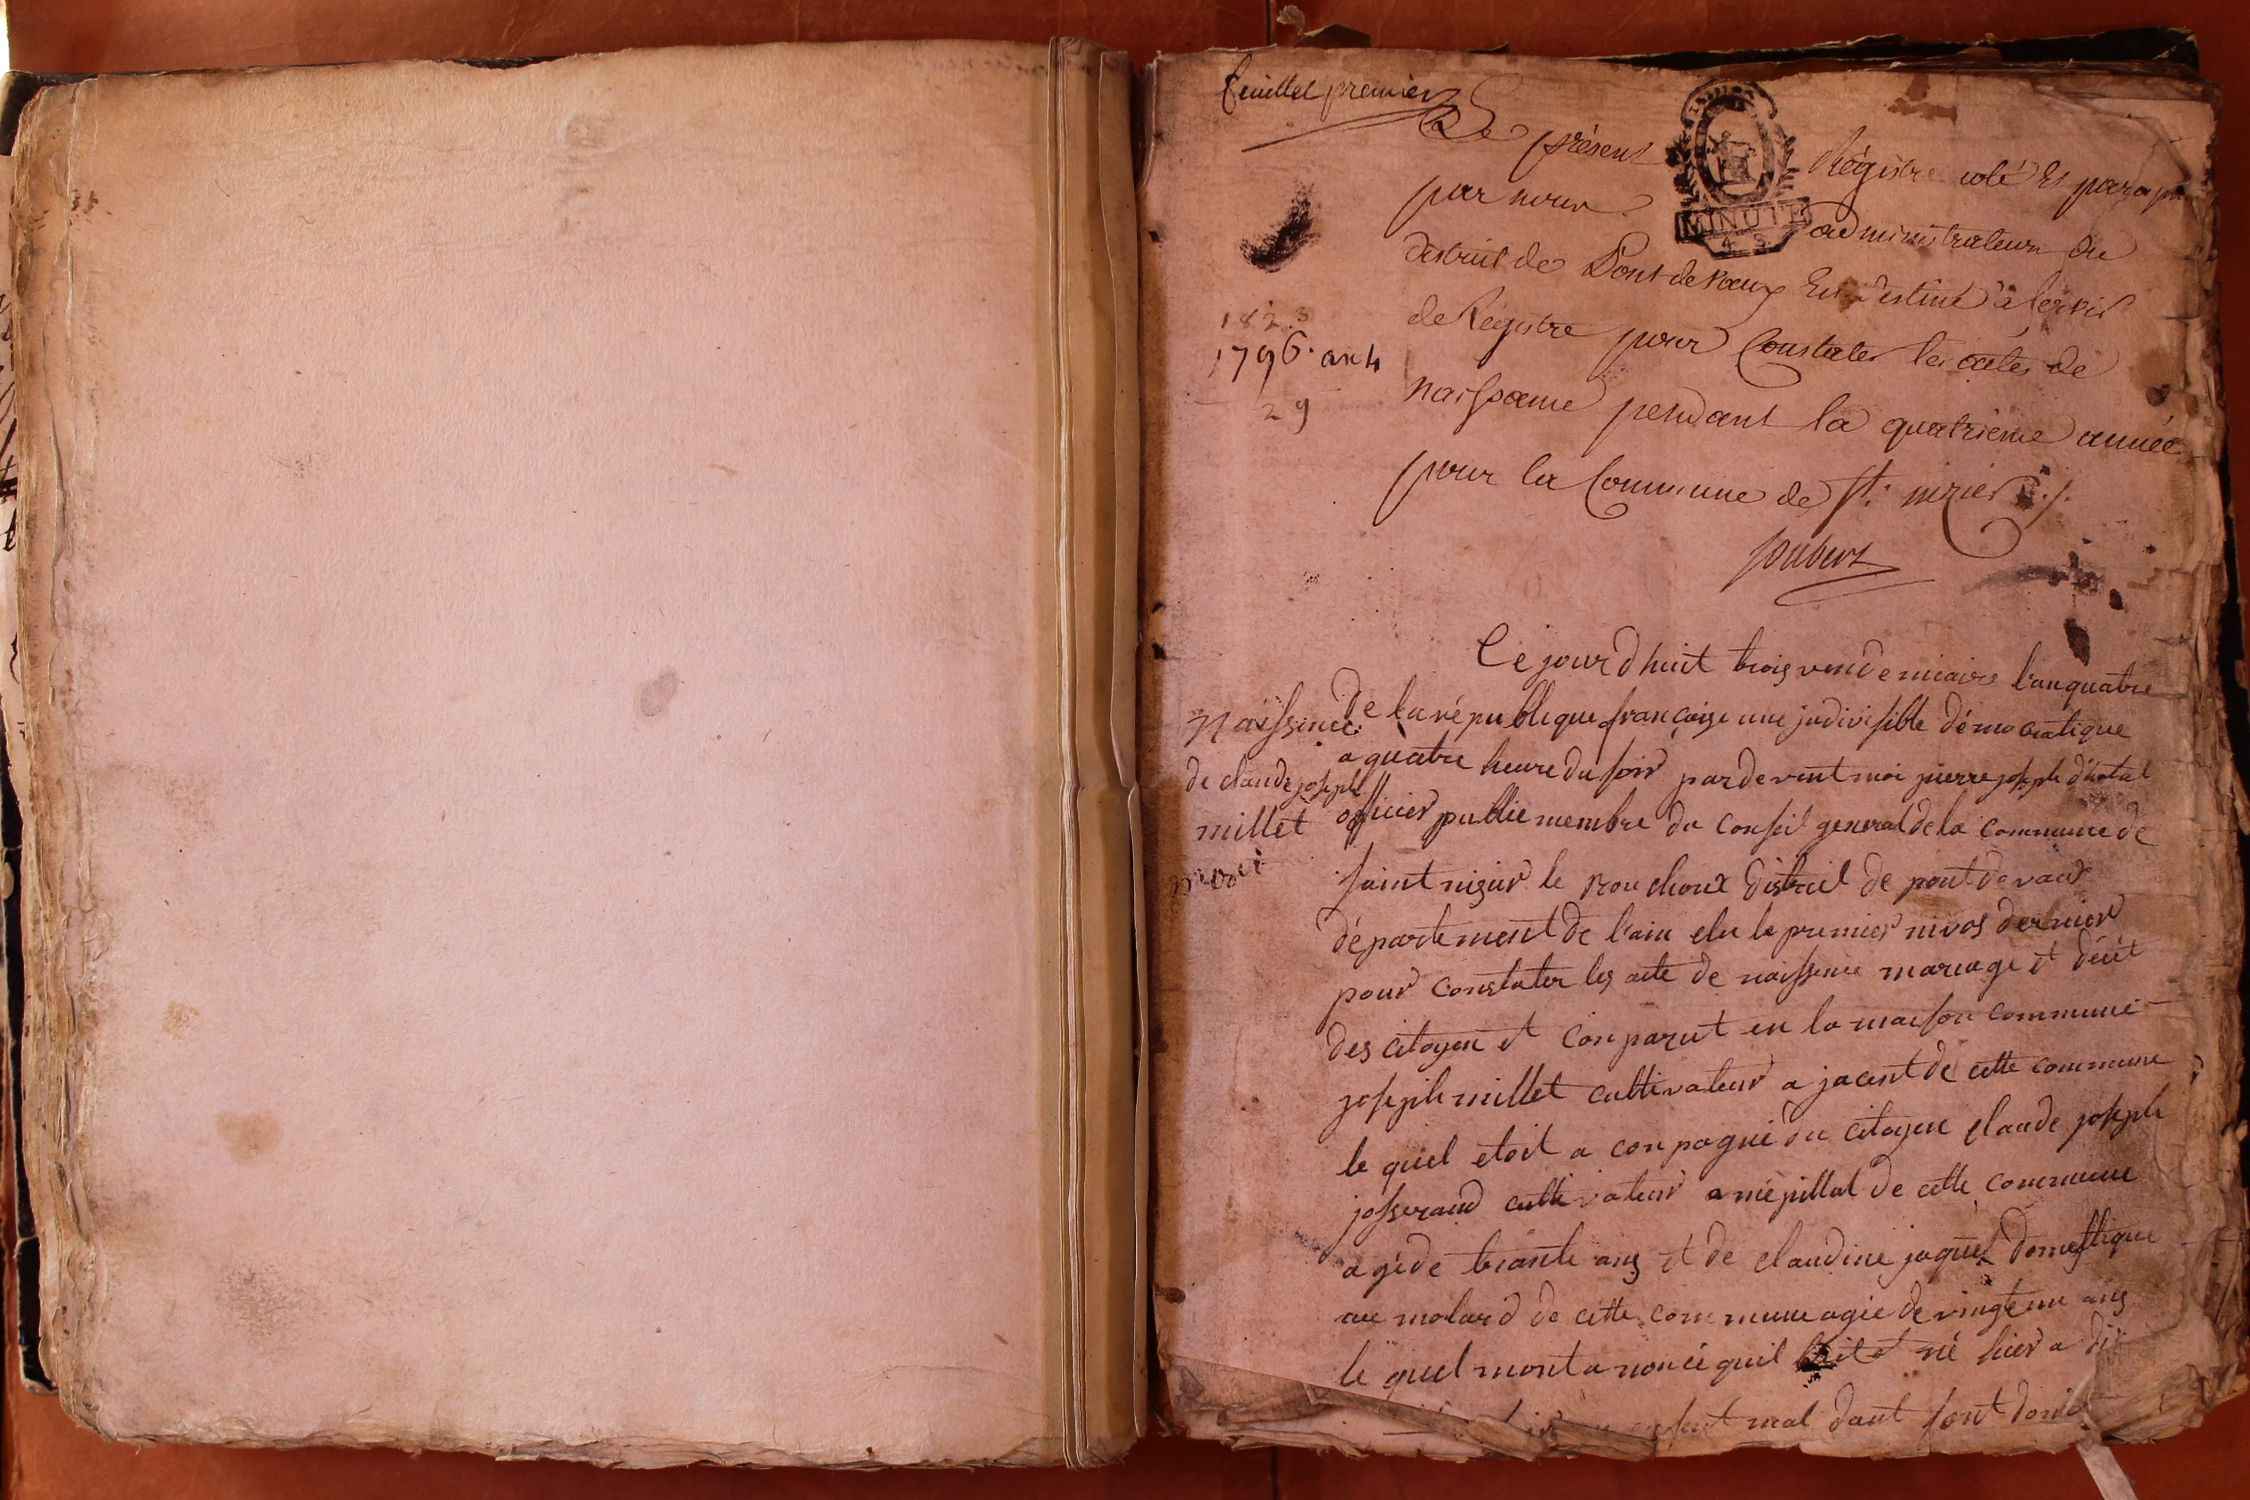 feuillet premier
Le présent Régistre coté Et paraphé
par nous administrateurs du
district de Pont de vaux Est destiné à servir
de Registre pour Constater les actes de
naissance pendant la quatrieme année
pour la Commune de St. nizier
joubert
MINUTE
4 S
1823
1796 an 4
29
Ce jourdhuit trois vendemiaire l'an quatre
de la république françaize une judivisible démocratique
a quatre heure du soir pardevent moi pierre joseph
officier public membre du conseil general de la commune de
saint nizier le Bouchoux district de pont de vaux
département de l'ain elu le premier nivos dernier
pour constater les acte de naissence mariage et décét
des citoyen et Conparut en la maison commune
joseph millet cultivateur a jacent de cette commune
le quel etoit a conpagnié du citoyen claude joseph
josserand cultivateur a mépillat de cette commune
agé de trante ans et de claudine jaquet domestique
au molard de cette commune agée de vingt un ans
le quel mont a noncé quil né hier a dix
enfant mal dont sont
naissence
de claude joseph
millet